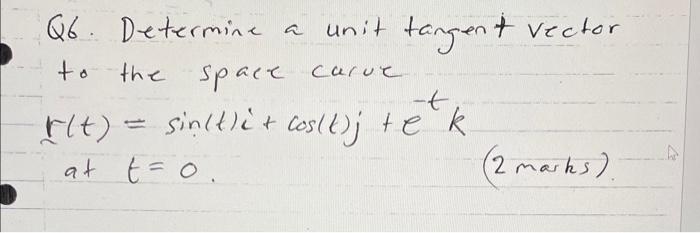 Q6. Determine a unit tangent vector
to the space curve
r(t) = sin(t)i + cos(t)j + e^-t k
at t = 0. (2 marks).